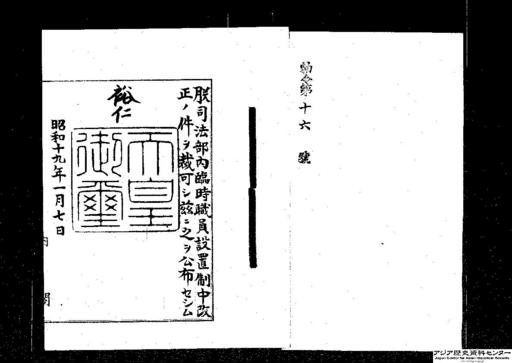 勅令第十六號
朕司法部內臨時職員設置制中改
正ノ件ヲ裁可シ茲ニ之ヲ公布セシム
裕仁
天皇御璽
昭和十九年一月七日
內閣
アジア歴史資料センター
Japan Center for Asian Historical Records